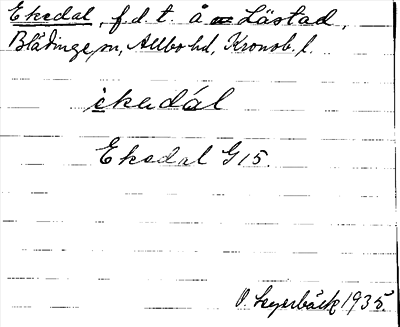 Ekedal, f.d.t. å Låstad,
Blädinge sn, Allbo hd, Kronob. l.
ekedál
Ekedal G15.
O. 1935